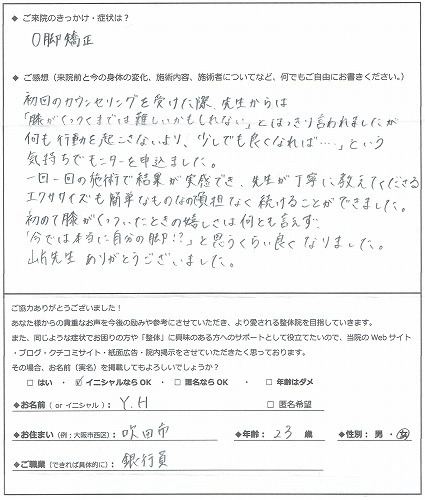 ◆ ご来院のきっかけ・症状は？
O脚矯正
◆ ご感想（来院前と今の身体の変化、施術内容、施術者についてなど、何でもご自由にお書きください。）
初回のカウンセリングを受けた際、先生からは
「膝がくっつくまでは難しいかもしれない」とはっきり言われましたが
何も行動を起こさないより、「少しでも良くなれば…」という
気持ちでモニターを申込ました。
一回一回の施術で結果が実感でき、先生が丁寧に教えてくださる
エクササイズも簡単なものなので負担なく続けることができました。
初めて膝がくっついたときの嬉しさは何とも言えず
「今では本当に自分の脚！？」と思うくらい良くなりました。
先生 ありがとうございました。
ご協力ありがとうございました！
あなた様からの貴重なお声を今後の励みや参考にさせていただき、より愛される整体院を目指していきます。
また、同じような症状でお困りの方や「整体」に興味のある方へのサポートとして役立てたいので、当院のWebサイト
・ブログ・クチコミサイト・紙面広告・院内掲示をさせていただきたく思っております。
その場合、お名前（実名）を掲載してもよろしいでしょうか？
□ はい ・ ☑ イニシャルなら OK ・ □ 匿名なら OK ・ □ 年齢はダメ
◆お名前（ or イニシャル ）： Y.H □ 匿名希望
◆お住まい（例：大阪市西区）： 吹田市 ◆年齢： 23 歳 ◆性別： 男 ・ 女
◆ご職業（できれば具体的に）： 銀行員